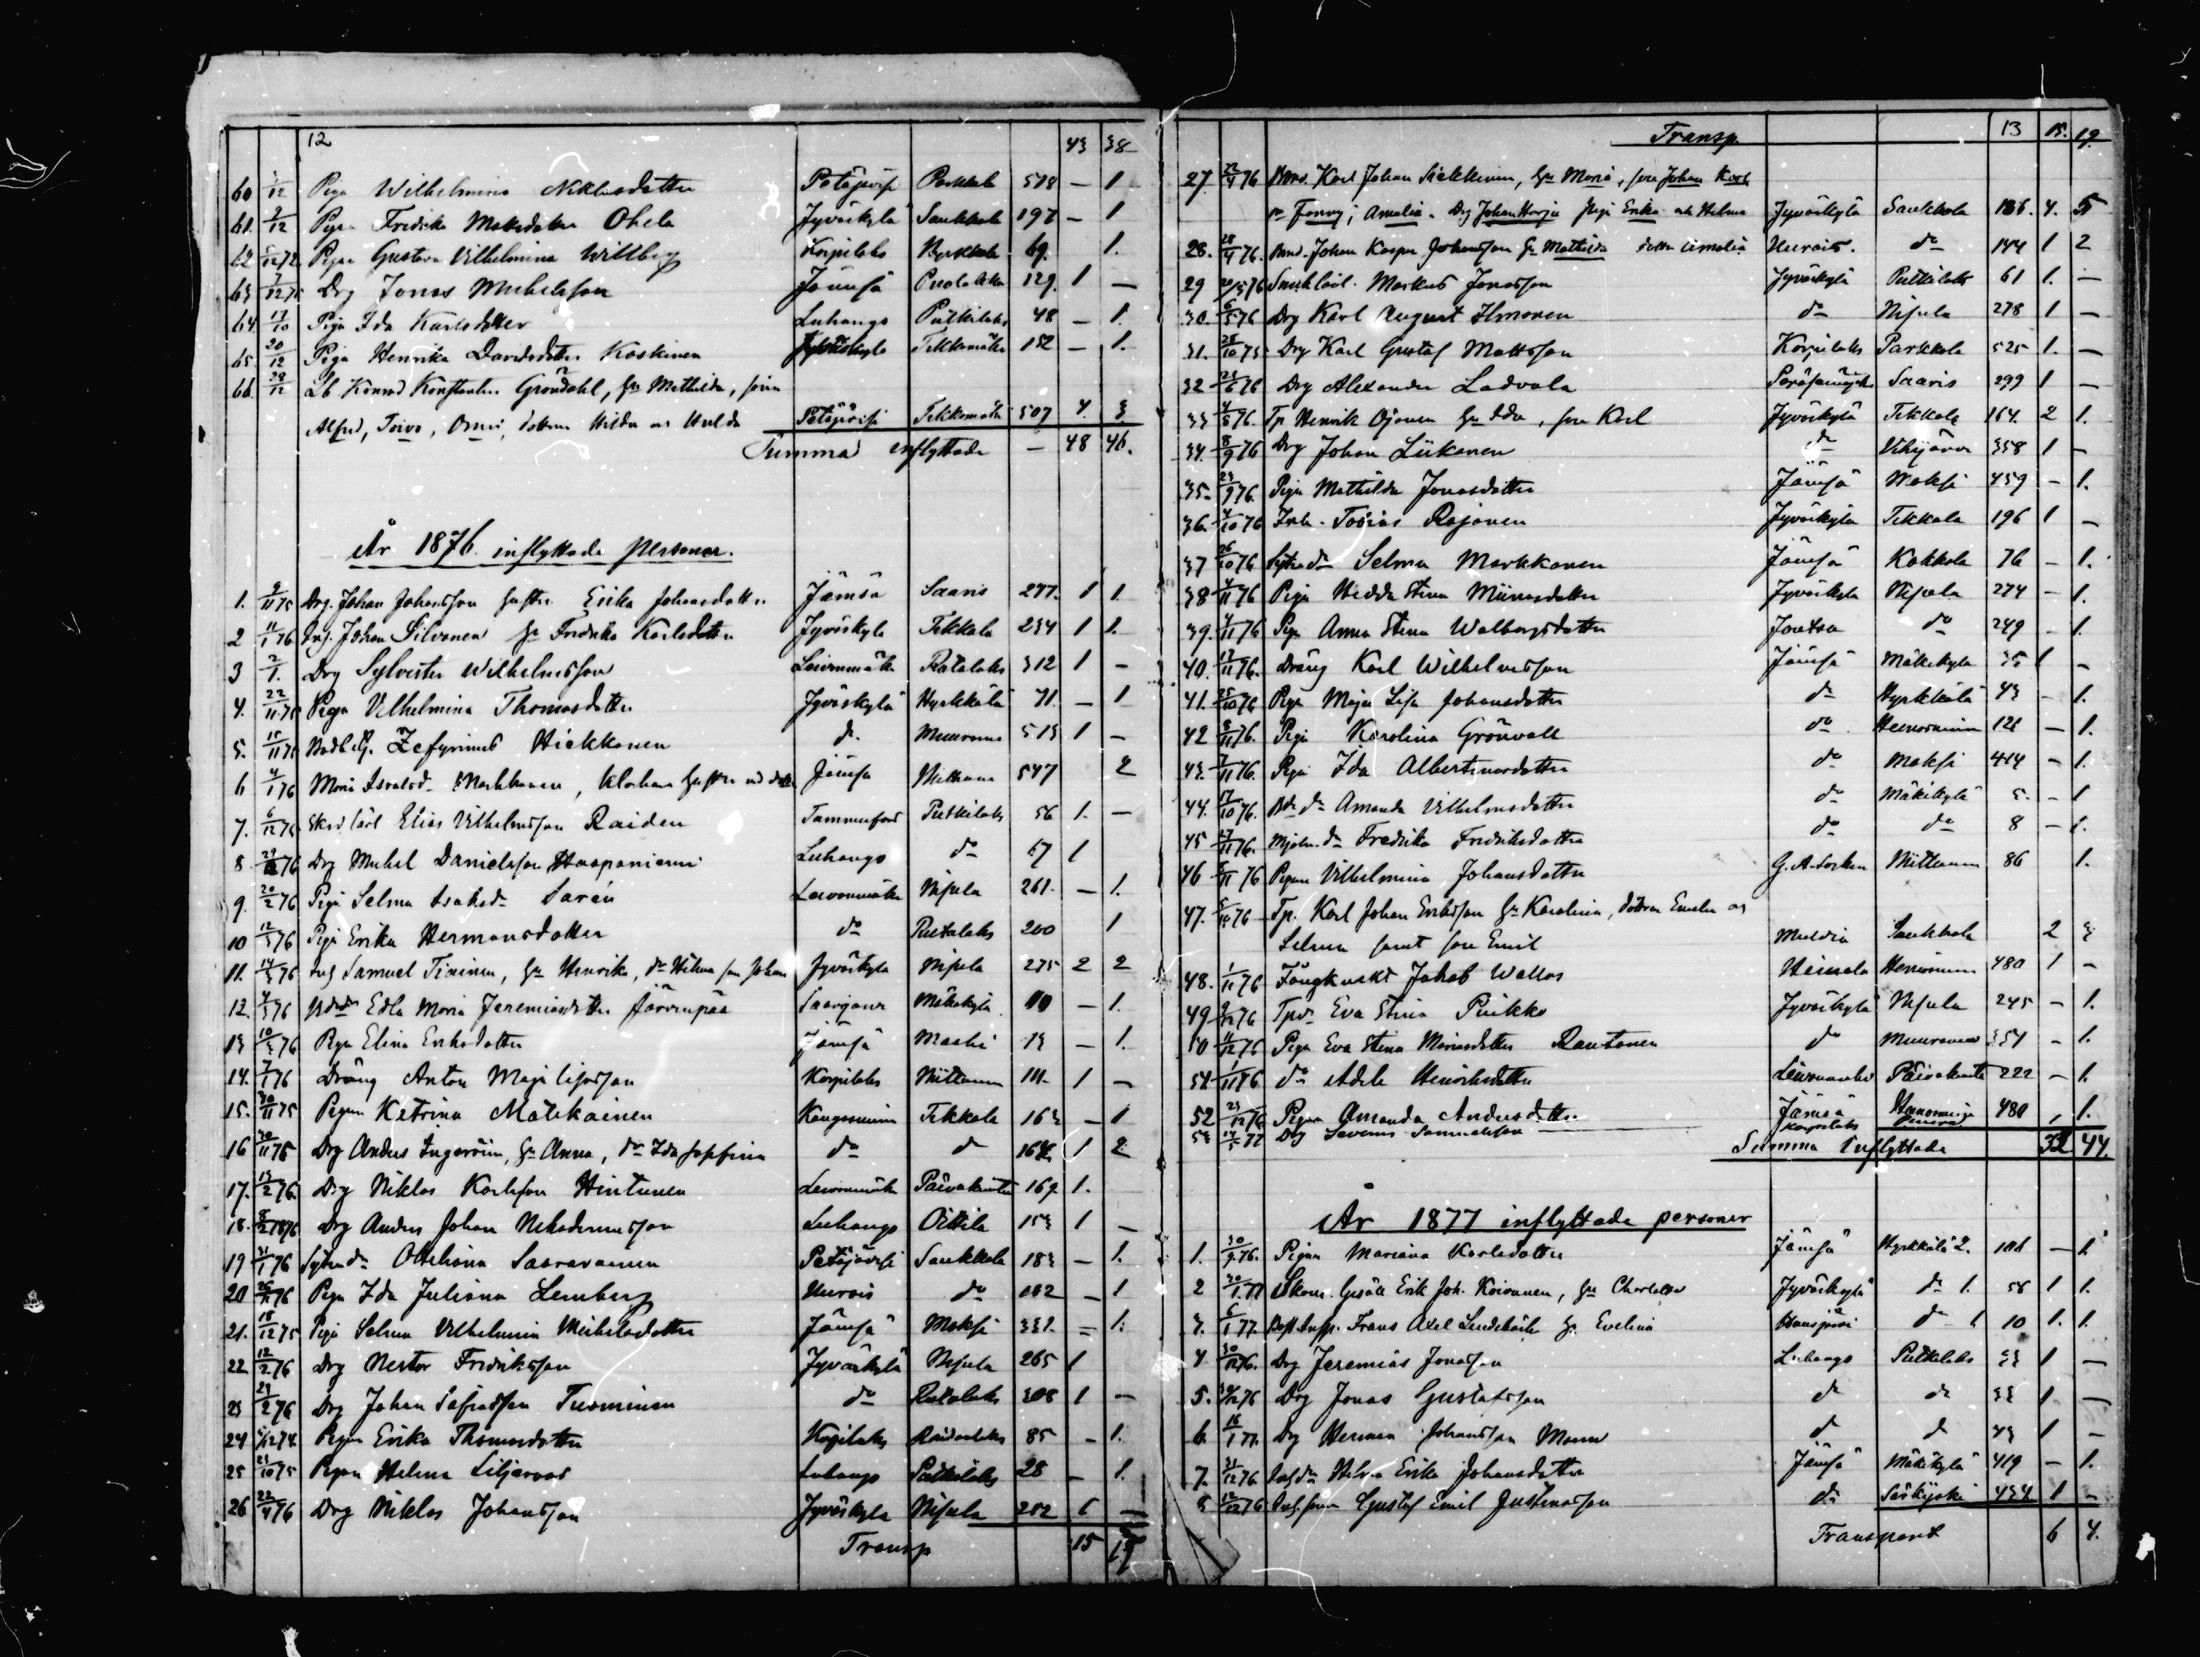 12 43 38
60 /12 Piga Wilhelmina Niklasdotter Petäjävesi Parkkola 578 — 1
61. 9/12 Pigan Fredrika Matsdotter Ohela Jyväskylä Saukkola 197 — 1
62 /1272. Pigan Gustava Vilhelmina Willberg Korpilaks Hyrkkälä 69. 1.
63 7/1275 Drg Jonas Michelsson Jämsä 129. 1 —
64. 17/10 Piga Ida Karlsdotter Luhango Putkilaks 48 — 1.
65 20/12 Piga Henrika Davidsdotter Koskinen Jyväskylä 152 — 1.
66. 28/12 Lb Konrad Konstantin Gröndahl, hu Mathilda, söner
Alfred, Toivo, Onni, döttrar Hilda och Hulda Petäjävesi 507 4. 3
Summa inflyttade — 48 46.
År 1876 inflyttade personer.
1. 9/1175 Drg. Johan Johansson hustru Erika Johansdotter Jämsä Saaris 277. 1 1.
2 11/176 Inh. Johan Silvonen hu Fredrika Karlsdotter Jyväskylä Tikkala 234 1 1.
3 2/1. Drg Sylvester Wilhelmsson Leivonmäki Rutalaks 312 1 —
4. 22/1175 Piga Vilhelmina Thomasdotter Jyväskylä Hyrkkälä 71. — 1
5. 15/1175 Zefyrinus Hickkanen do. Muurame 513 1 —
6 4/176 Maria Markkanen, hustru Jämsä Niittaum 547 2
7. 6/1275 Elias Vilhelmsson Raiden Tammerfors Putkilaks 56 1. —
8. 29/76 Drg Mickel Danielsson Haapaniemi Luhango do 67 1
9. 20/276 Piga Selma Isaksdr Sarén Leivonmäki Nisula 261. — 1.
10 12/376 Piga Erika Hermansdotter do Rutalaks 200 1
11. 14/376 Inh Samuel Tiainen, hu Henrika, dr Hilma son Johan Jyväskylä Nisula 275 2 2
12. 4/376 Edla Maria Jeremiasdotter Järvenpää Saarijärvi Mäkikylä 110 — 1.
13 10/376 Piga Elina Eriksdotter Jämsä Maaksi 13 — 1.
14. 7/176 Dräng Anton Majalisasson Korpilaks Niittaum 111. 1 —
15. 30/1175 Pigan Katrina Mätikäinen Kangasniemi Tikkala 163 — 1
16 30/1175 Drg Anders Ingeröin, hu Anna, dr Ida Josefina do d 164 1 2
17. 13/276. Drg Niklas Karlsson Hintunen Leivonmäki Päiväkunta 169 1.
18. 8/21876 Drg Anders Johan Nikodemusson Luhango Oittila 153 1 —
19 21/176 Sytnedr Ottiliana Saaravainen Petäjävesi Saukkola 183 — 1.
20 26/76 Piga Ida Juliana Lemberg Muurais do 102 — 1
21. 18/1275 Piga Selma Vilhelmina Michelsdotter Jämsä Maksi 331. — 1.
22 12/276 Drg Nestor Fredriksson Jyväskylä Nisula 265 1
23 29/276 Drg Johan Safradsson Tuominen do Rutalaks 308 1 —
24 /1274. Pigan Erika Thomasdotter Korpilaks 85 — 1.
25 23/1075 Pigan Helena Liljeroos Luhango Putkilaks 28 — 1.
26 22/476 Drg Niklas Johansson Jyväskylä Nisula 252 6 —
Transp 15 19
Transp. 13 15. 19.
27. 22/476 Karl Johan Siekkinen, hu Maria, son Johan Karl
dr Fanny, Amalia. Drg Johan Harju Piga Erika och Helena Jyväskylä Saukkola 186. 4. 5
28. 28/476. Johan Kasper Johansson hu Mathilda dotter Amalia Muurais. do 144 1 2
29 20/576 Markus Jonasson Jyväskylä Putkilaks 61 1. —
30. 6/576 Drg Karl August Ilmonen do Nisula 278 1 —
31. 28/1075 Drg Karl Gustaf Mattsson Korpilaks Parkkola 525 1. —
32 21/676 Drg Alexander Ladvala Saaris 299 1 —
33 4/876. Tp Henrik Ojanen hu Ida, son Karl Jyväskylä Tikkala 164. 2 1.
34. 8/976 Drg Johan Liikanen do Vihijärvi 358 1 —
35. 23/976. Piga Mathilda Jonasdotter Jämsä Maksi 459 — 1.
36. 4/1076 Inh. Tobias Rajanen Jyväskylä Tikkala 196 1 —
37 26/1076 Sytnedr Selma Markkanen Jämsä Kakkola 76 — 1.
38 4/1176 Piga Hedda Stina Miinasdotter Jyväskylä Nisula 274 — 1.
39. 4/1176 Piga Anna Stina Walborgsdotter Joutsa do 249 — 1.
40. 13/1176. Dräng Karl Wilhelmsson Jämsä Mäkikylä 35 1 —
41. 25/1076 Piga Maja Lisa Johansdotter do Hyrkkälä 43 — 1.
42 8/1176. Piga Karolina Grönvall do 121 — 1.
43. 7/1176. Piga Ida Albertinasdotter do Maksi 414 — 1.
44. 17/1076. dr Amanda Vilhelmsdotter do Mäkikylä 5. — 1
45 13/1176. Mjöln. dr Fredrika Fredriksdotter do do 8 — 1.
46 5/1176 Pigan Vilhelmina Johansdotter G. A. Socken Niittaum 86 1.
47. 5/1076 Tp. Karl Johan Eriksson hu Karolina, döttrar Emelia och
Selma samt son Emil Muldia Saukkola 2 3
48. 1/1176 Fångknekt Jakob Wallos Heinola 480 1 —
49 9/1276 Tpdr Eva Stina Piikko Jyväskylä Nisula 245 — 1.
50 11/1276 Piga Eva Stina Mariasdotter Rautanen do Muurame 354 — 1.
51. 1/1176 do Adela Henriksdotter Leivonmäki Päiväkunta 222 — 1.
52 23/1276 Pigan Amanda Andersdotter Jämsä 480 1.
53 14/577 Drg Severus Samuelsson Korpilaks
Summa Inflyttade 32 44.
År 1877 inflyttade personer
1. 30/976. Pigan Mariana Karlsdotter Jämsä Hyrkkälä 2. 106 — 1.
2 30/177 Skom. Gesäll Erik Joh. Koivunen, hu Charlotta Jyväskylä do 1. 58 1 1.
3. 6/177. Frans Axel Lindebäck hu Evelina Hausjärvi do 1 10 1. 1.
4 30/1276. Drg. Jeremias Jonasson Luhango Putkilaks 33 1 —
5. /1276 Drg Jonas Gustafsson do do 33 1 —
6. 16/177. Drg Herman Johansson Manner d d 43 1 —
7. 31/1276 Inhdr Helena Erika Johansdotter Jämsä Mäkikylä 419 — 1.
8 12/1276 Inh. son Gustaf Emil Justinasson do Särkijoki 434 1 —
Transport 6 4.